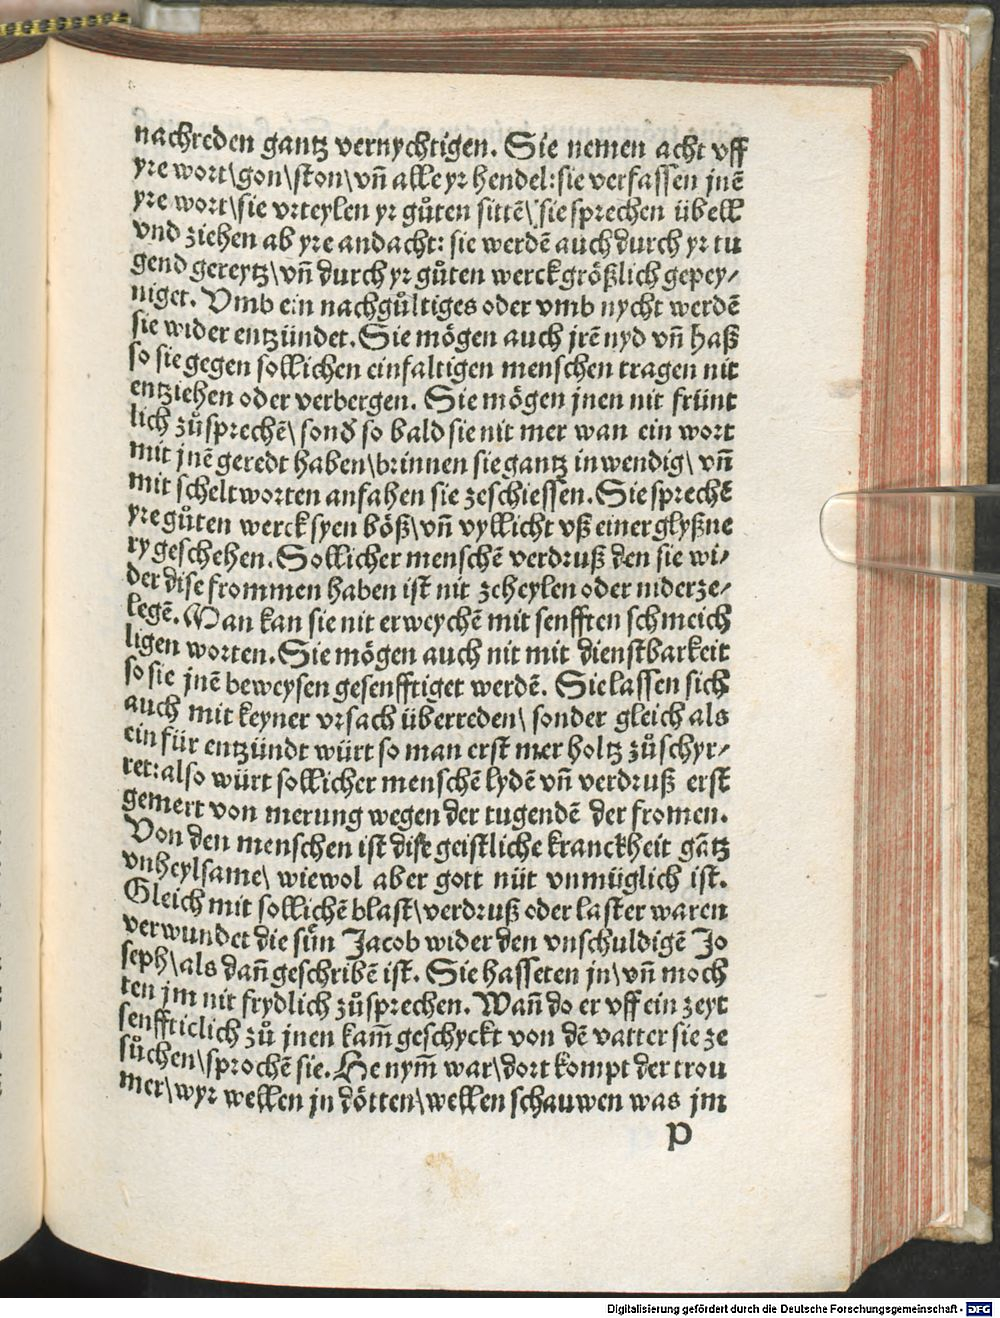 nachreden gantz vernychtigen. Sie nemen acht vff
yre wort\gon\ston\vñ alle yr hendel:sie verfassen jnẽ
yre wort\sie vrteylen yr gůten sittẽ\sie sprechen übell
vnd ziehen ab yre andacht: sie werdẽ auch durch yr tu
gend gereytz\vñ durch yr gůten werck größlich gepey⸗
niget. Vmb ein nachgůltiges oder vmb nycht werdẽ
sie wider entzündet. Sie mögen auch jrẽ nyd vñ haß
so sie gegen sollichen einfaltigen menschen tragen nit
entziehen oder verbergen. Sie mögen jnen nit frünt
lich zůsprechẽ\sonđ so bald sie nit mer wan ein wort
mit jnẽ geredt haben\brinnen sie gantz inwendig\ vñ
mit scheltworten anfahen sie zeschiessen. Sie sprechẽ
yre gůten werck syen böß\vñ vyllicht vß einer glyßne
ry geschehen. Sollicher menschẽ verdruß den sie wi⸗
der dise frommen haben ist nit zeheylen oder niderze⸗
legẽ. Man kan sie nit erweychẽ mit senfften schmeich
ligen worten. Sie mögen auch nit mit dienstbarkeit
so sie jnẽ beweysen gesenfftiget werdẽ. Sie lassen sich
auch mit keyner vrsach überreden\ sonder gleich als
ein für entzündt würt so man erst mer holtz zůschyr⸗
ret: also würt sollicher menschẽ lydẽ vñ verdruß erst
gemert von merung wegen der tugendẽ der fromen.
Von den menschen ist dise geistliche kranckheit gãtz
vnheylsame\ wiewol aber gott nüt vnmüglich ist.
Gleich mit sollichẽ blast\verdruß oder laster waren
verwundet die sün Jacob wider den vnschuldigẽ Jo
seph\als dañ geschribẽ ist. Sie hasseten jn\vñ moch
ten jm nit frydlich zůsprechen. Wañ do er vff ein zeyt
senffticlich zů jnen kam̃ geschyckt von dẽ vatter sie ze
sůchen\sprochẽ sie. He nym̃ war\dort kompt der trou
mer\wyr wellen jn dötten\wellen schauwen was jm
p
Digitalisierung gefördert durch die Deutsche Forschungsgemeinschaft - DFG